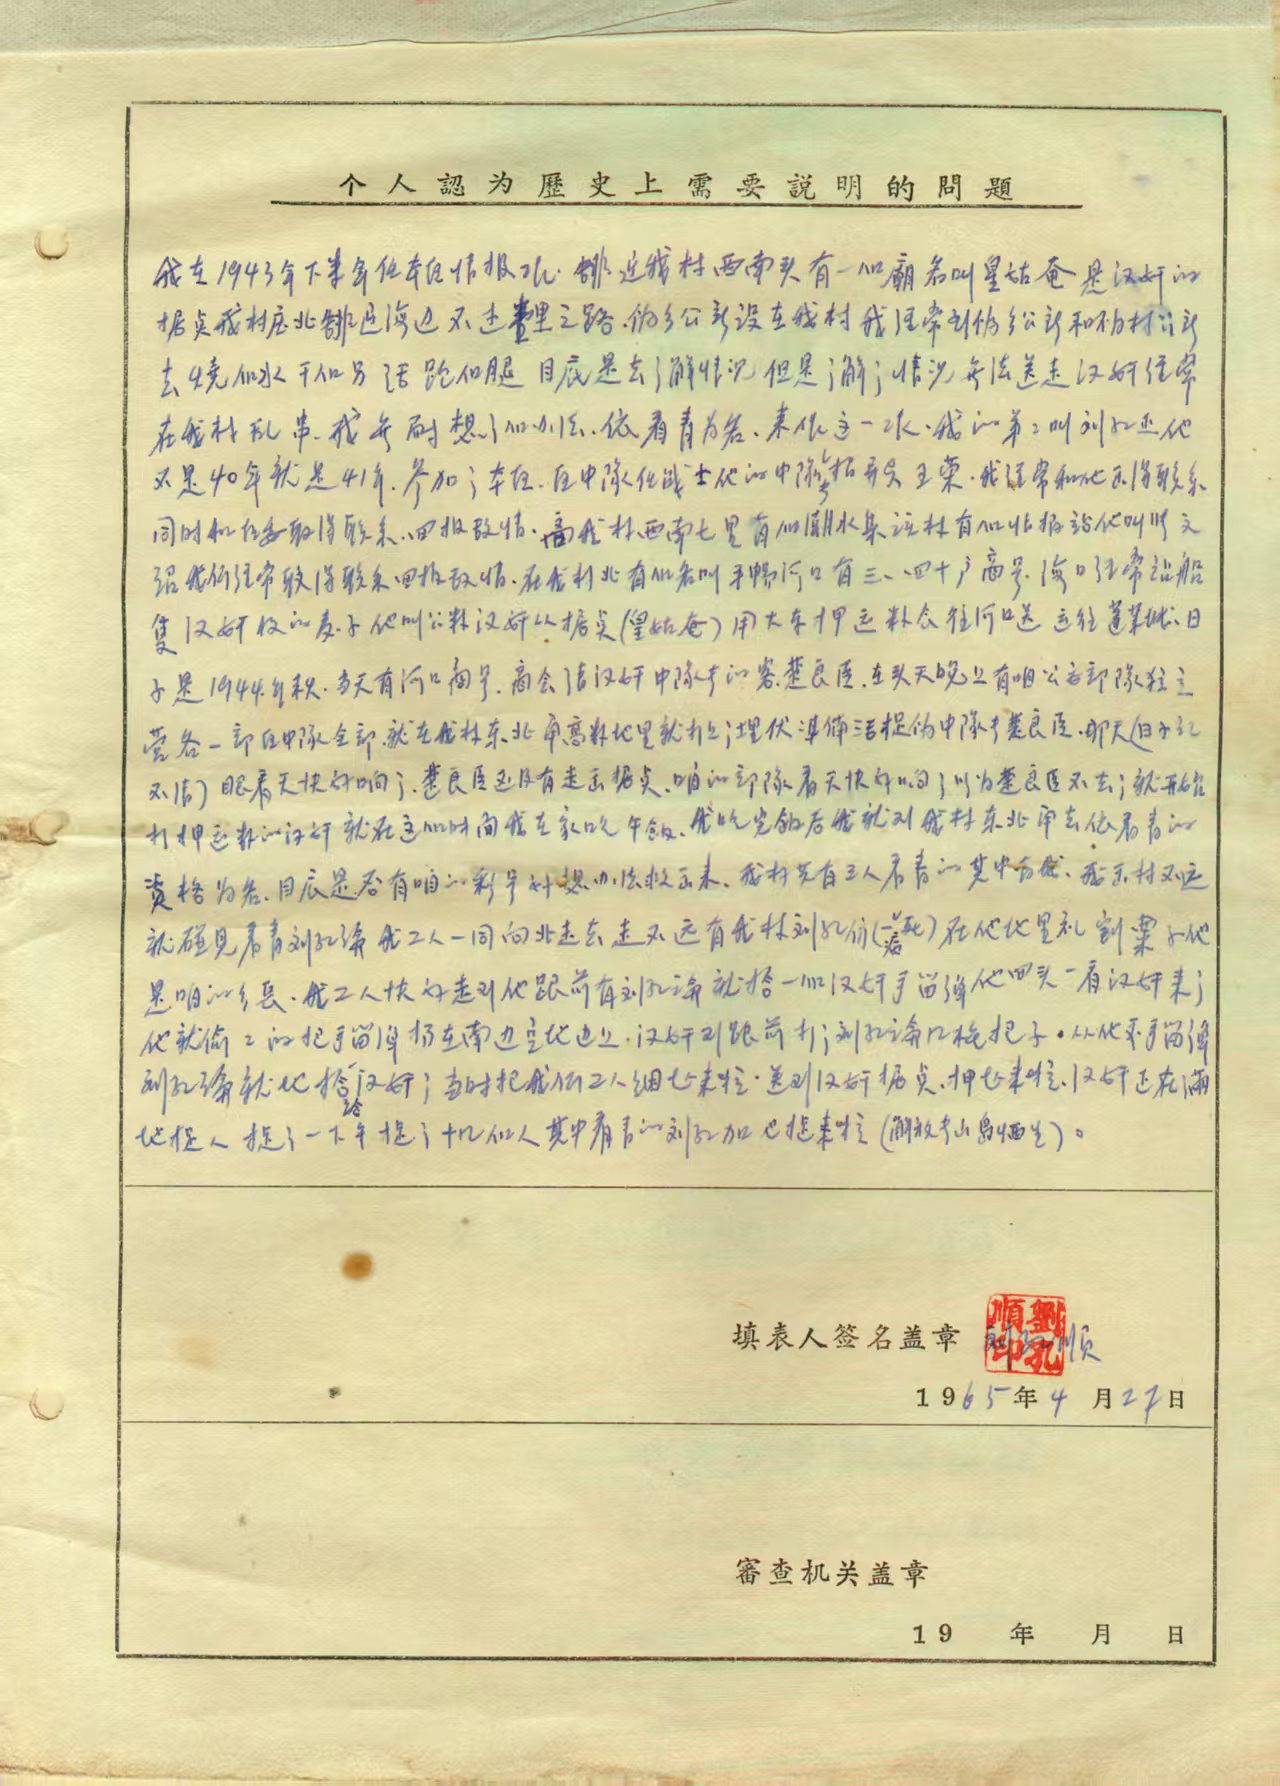 个人認为歷史上需要説明的問題
我在1943年下半年任本区情报 . 靠近我村西南头有一個廟名叫皇姑庵是汉奸的
据点我村 北 海边不过 里之路.伪乡公所设在我村我经常到伪乡公所和 村公所
去燒個水干個另活跑個腿目底是去了解情况但是了解了情况无法送走汉奸经常
在我村乱串.我无耐想了個办法.依看青为名.来 这一 .我的弟弟叫刘孔 他
不是40年就是41年.参加了本区.区中隊任战士他的中隊长 王荣.我经常和他取得联系
同时和 取得联系.回报敌情.离我村西南七里有個潮水集该村有個情报站他叫 文
绍我们经常取得联系回报敌情.在我村北有個名叫平暢河口有三、四十户商号.海口经常 船
隻汉奸收的麦子他叫公粮汉奸从据点(皇姑庵)用大车押运粮食往河口送运往蓬莱城.日
子是1944.年秋.当天有河口商号.商会请汉奸中隊长的客.楚良臣.在头天晚上有咱公安部隊独立
营各一部区中隊全部.就在我村东北 高粮地里就打上了埋伏準備活捉伪中隊长楚良臣.那天(日子记
不清)眼看天快好晌了.楚良臣还没有走出据点.咱的部隊看天快好晌了以为楚良臣不去了就开始
打押运粮的汉奸就在这個时间我在家吃午飯.我吃完飯后我就到我村东北 去依看青的
资格为名.目底是否有咱的彩号好想办法救出来.我村共有三人看青的其中有我.我出村不远
就碰见看青刘孔 我二人一同向北走去走不远有我村刘孔 (已病死)在他地里扎割粟子他
是咱的乡长.我二人快好走到他跟前有刘孔 就拾一個汉奸手留弹他回头一看汉奸来了
他就偷偷的把手留弹扔在南边 地边上.汉奸到跟前打了刘孔 几枪把子.从他要手留弹
刘孔 就地拾给汉奸了当时把我们二人細起来啦.送到汉奸据点.押起来啦.汉奸还在满
地捉人捉了一下午捉了十几個人其中看青的刘孔加也捉来啦(解放长山岛牺牲)。
填表人签名盖章 刘孔順
劉孔順印
1965年4月27日
審查机关盖章
19 年 月 日